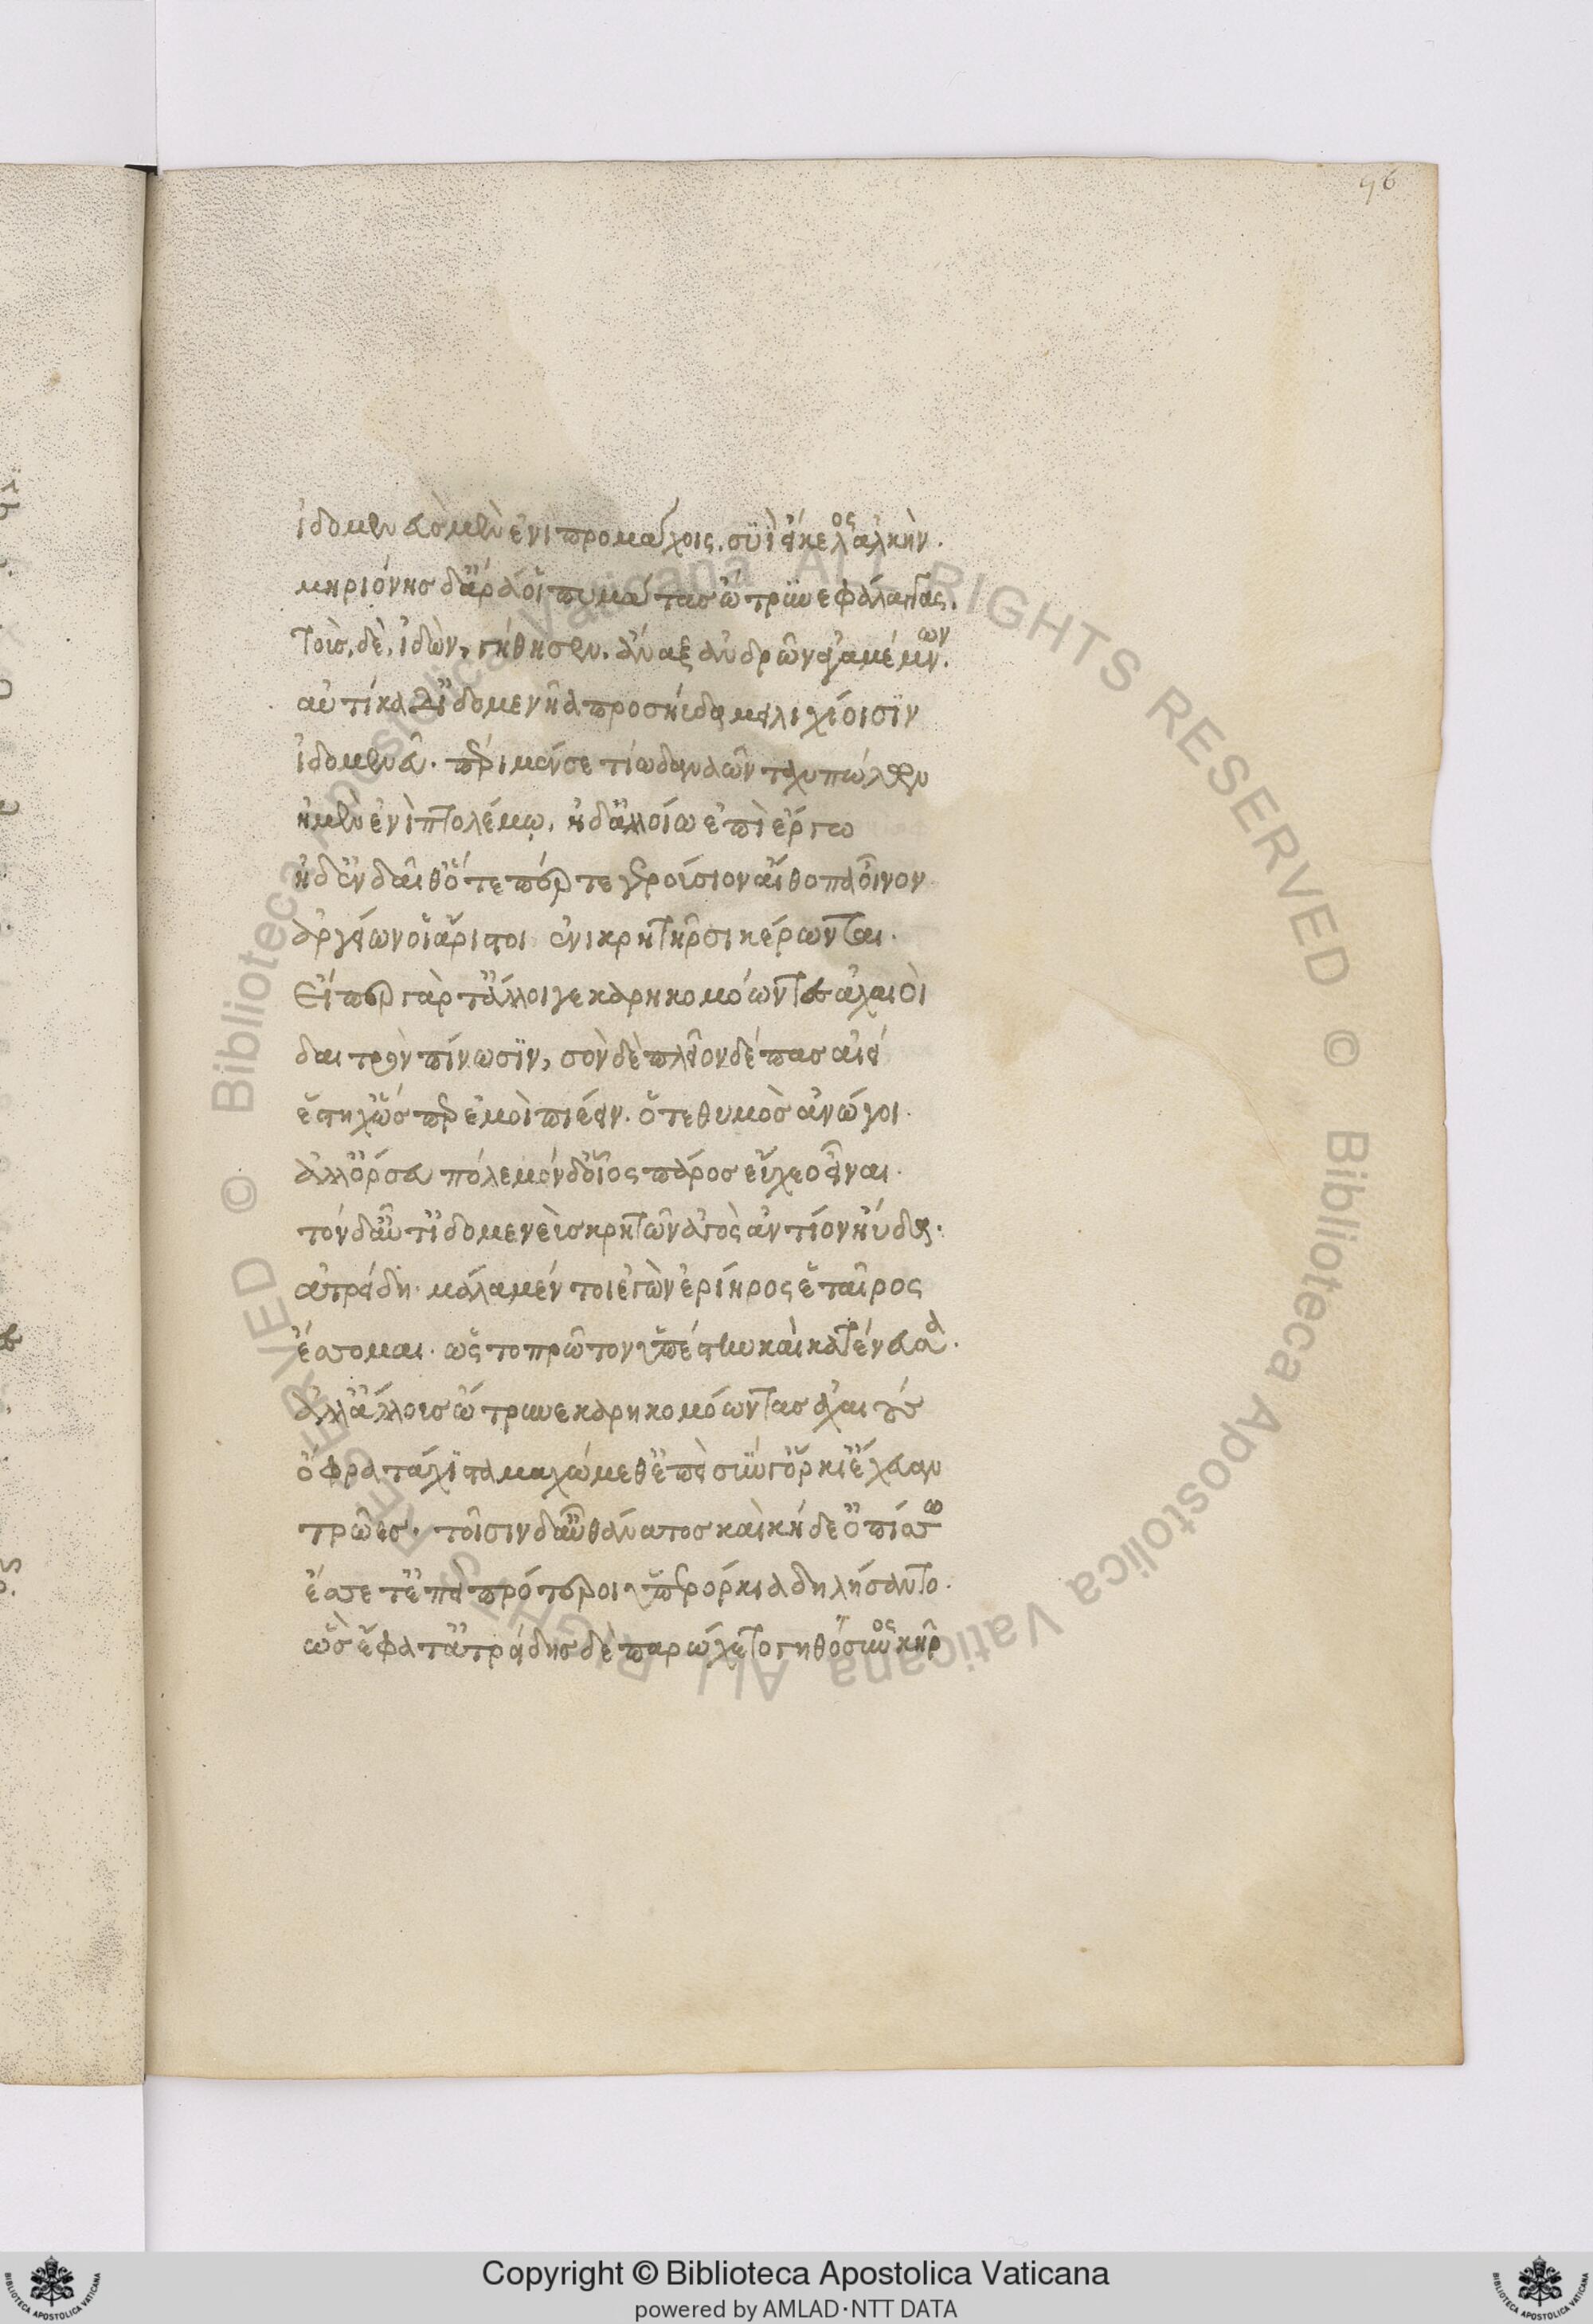 96
ἰδομενεὺς μὲν ἐνὶ προμάχοις. συῒ εἴκελος ἀλκὴν.
μηριόνης δ᾽ ἄρά οἱ πυμάτας ὤτρυνε φάλαγγας.
Τοὺς, δὲ, ἰδὼν, γήθησεν. ἄναξ ἀνδρῶν ἀγαμέμνων.
αὐτίκα δ᾽ ἰδομενῆα προσηύδα μειλιχίοισϊν
ἰδομενεῦ. περὶ μέν σε τίω δαναῶν ταχυπώλων
ἠμὲν ἐνὶ πτολέμῳ. ἠδ᾽ ἀλλοίω ἐπὶ ἔργω
ἠδ᾽ ἐν δαῖθ᾽ ὅτε πέρ τε γερούσιον αἴθοπα οἶνον
ἀργείων οἱ ἄριστοι ἐνὶ κρητῆρσι κέρωνται.
Εἴπερ γὰρ τ᾽ ἄλλοι γε καρηκομόωντες ἀχαιοὶ
δαιτρὸν πίνωσϊν, σὸν δὲ πλεῖον δέπας αἰεί
ἕστηχ᾽ ὥς περ ἐμοὶ πιέειν. ὅτε θυμὸς ἀνώγοι.
ἀλλ᾽ ὄρσευ πόλεμόνδ᾽ οἷος πάρος εὔχεο εἶναι.
τόνδ᾽ αὖτ᾽ ἰδομενεὺς κρητῶν ἀγὸς ἀντίον ηύδα.
ἀτρείδη. μάλα μέν τοι ἐγὼν ἐρίηρος ἑταῖρος
ἔσσομαι. ὡς τοπρῶτον ὑπέστην καὶ κατένευσα.
ἀλλ᾽ ἄλλους ὤτρυνε καρηκομόωντας ἀχαιούς
ὄφρα τάχϊστα μαχώμεθ᾽ ἐπεὶ σύν γ᾽ ὅρκι᾽ ἔχευαν
τρῶες. τοῖσιν δ᾽ αὖ θάνατος καὶ κήδε᾽ ὀπίσσω
ἔσσετ᾽ ἐπεὶ πρότεροι ὑπὲρ ὅρκια δηλήσαντο.
ὣς ἔφατ᾽ ἀτρείδης δὲ παρώχετο γηθόσυνος κῆρ
Biblioteca Apostolica Vaticana ALL RIGHTS RESERVED ©
Biblioteca Apostolica Vaticana ALL RIGHTS RESERVED ©
Copyright © Biblioteca Apostolica Vaticana
powered by AMLAD·NTT DATA
BIBLIOTECA APOSTOLICA VATICANA
BIBLIOTECA APOSTOLICA VATICANA